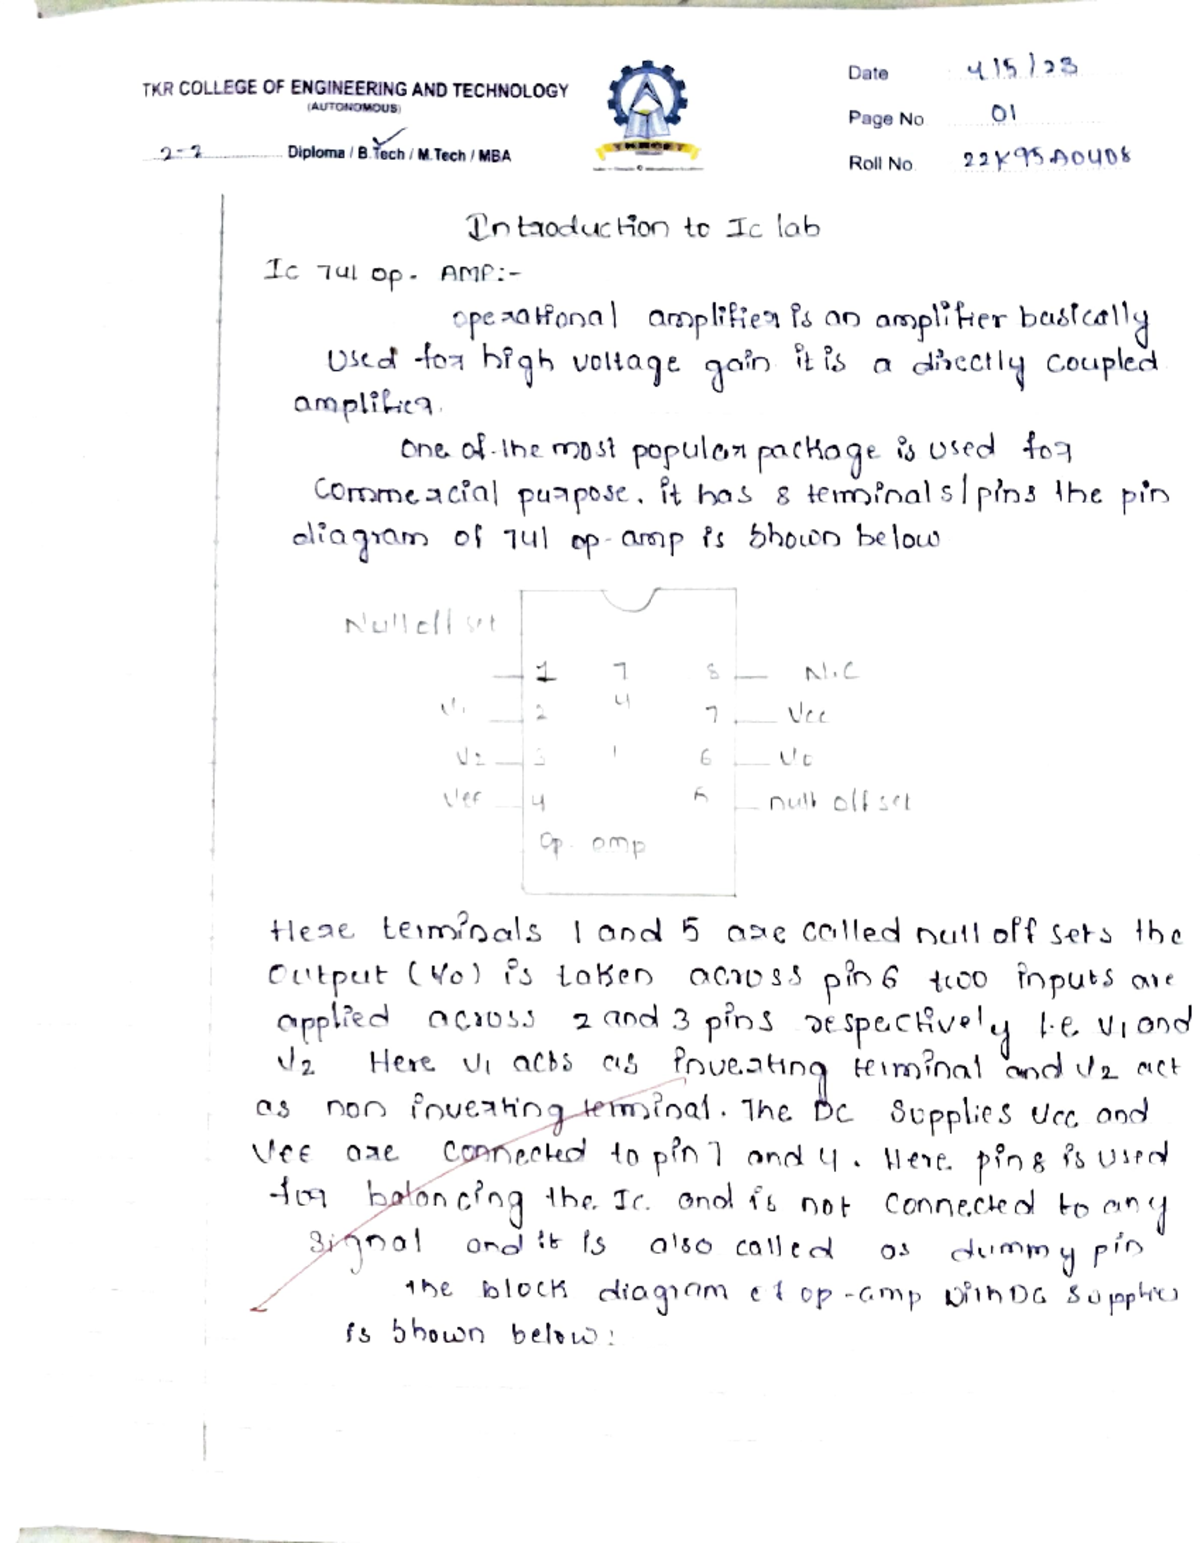 TKR COLLEGE OF ENGINEERING AND TECHNOLOGY
(AUTONOMOUS)
2-2 Diploma / B.Tech / M.Tech / MBA
Date 4/5/23
Page No 01
Roll No 22K95A0408
Introduction to Ic lab
Ic 741 op. AMP:-
operational amplifier is an amplifier basically
used for high voltage gain it is a directly coupled
amplifier.
One of the most popular package is used for
Commercial purpose. it has 8 terminals/pins the pin
diagram of 741 op-amp is shown below
Null off set
1 7 8 N.C
V1 2 4 7 Vcc
V2 3 1 6 Vo
VEE 4 5 null off set
Op. amp
Here terminals 1 and 5 are called null off sets the
Output (Vo) is taken across pin 6 two inputs are
applied across 2 and 3 pins respectively i.e. V1 and
V2 Here V1 acts as inverting terminal and V2 act
as non inverting terminal. The Dc Supplies Vcc and
VEE are connected to pin 7 and 4. Here pin 8 is used
for balancing the Ic. and is not connected to any
signal and it is also called as dummy pin
the block diagram of op-amp with DC Supplies
is shown below: